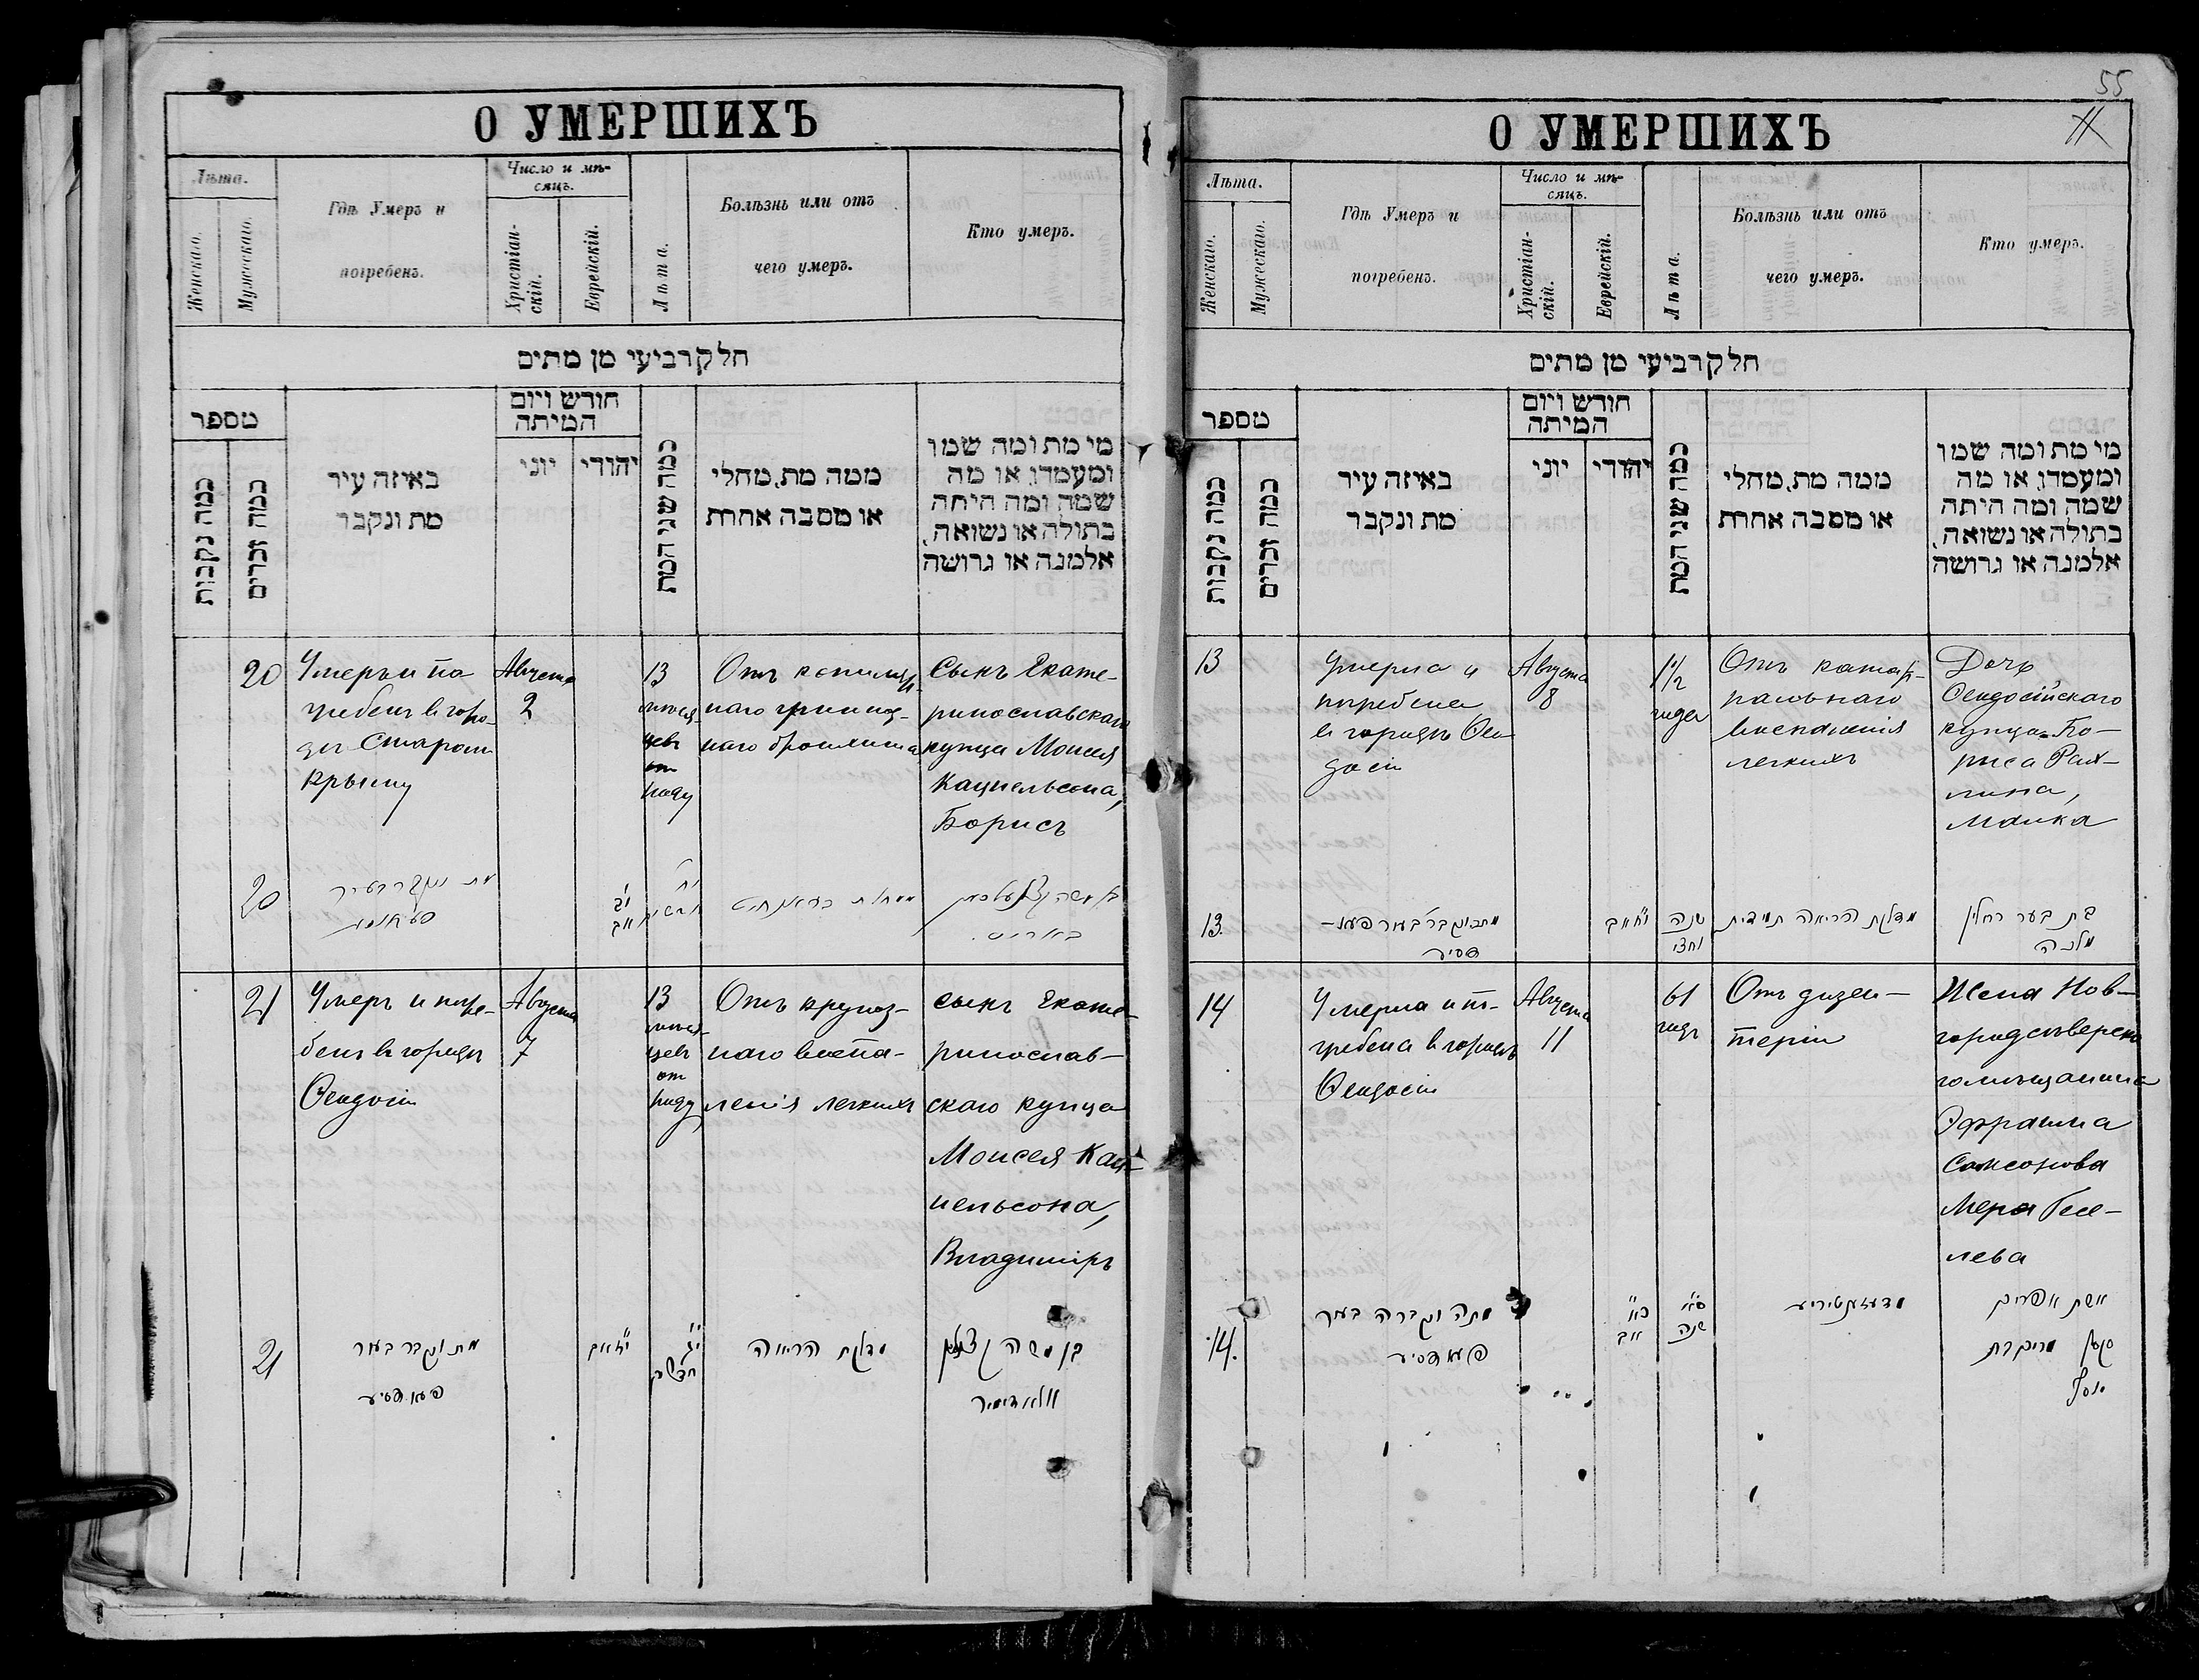 О УМЕРШИХЪ
Лѣта.
Женскаго.
Мужескаго.
Гдѣ Умеръ и
погребенъ.
Число и мѣ-
сяцъ.
Христіан-
скій.
Еврейскій.
Лѣта.
Болѣзнь или отъ
чего умеръ.
Кто умеръ.
חלק רביעי מן מתים
מספר
כמה נקבות
כמה זכרים
באיזה עיר
מת ונקבר
חודש ויום
המיתה
יוני
יהודי
כמה שני המת
ממה מת, מחלי
או מסבה אחרת
מי מת ומה שמו
ומעמדו, או מה
שמה ומה היתה
בתולה או נשואה,
אלמנה או גרושה
20
Умеръ и по
гребенъ в горо-
дѣ Старом
Крыму
Августа
2
13
мѣсяц
цевъ
от
роду
Отъ
наго
наго бронхита
Сынъ Екате-
ринославскаго
купца Моисея
Кацнельсона,
Борисъ
20
מת ונקבר בעיר
י"ג
אב
בן משה קצנעלסאן
באריס
21
Умеръ и погре-
бенъ в городѣ
Ѳеодосіи
Августа
7
13
мѣся-
цевъ
от
роду
Отъ крупоз-
наго воспа-
ленія легкихъ
сынъ Екате-
ринослав-
скаго купца
Моисея Кац-
нельсона,
Владиміръ
21
מת ונקבר בעיר
פעאדסיע
י"ז אב
י"ג
חדשים
מדלקת הריאה
בן משה קצנלסן
וולאדימיר
55
О УМЕРШИХЪ
Лѣта.
Женскаго.
Мужескаго.
Гдѣ Умеръ и
погребенъ.
Число и мѣ-
сяцъ.
Христіан-
скій.
Еврейскій.
Лѣта.
Болѣзнь или отъ
чего умеръ.
Кто умеръ.
חלק רביעי מן מתים
מספר
כמה נקבות
כמה זכרים
באיזה עיר
מת ונקבר
חודש ויום
המיתה
יוני
יהודי
כמה שני המת
ממה מת, מחלי
או מסבה אחרת
מי מת ומה שמו
ומעמדו, או מה
שמה ומה היתה
בתולה או נשואה,
אלמנה או גרושה
13
Умерла и
погребена
в городѣ Ѳео
досіи
Августа
8
1 1/2
года
Отъ катар-
ральнаго
воспаленія
легкихъ
Дочь
Ѳеодосійскаго
купца Бо-
риса Рах-
лина,
Малка
13.
י"ח אב
שנה
וחצי
מדלקת הריאה תמידית
בת בער רחלין
מלכה
14
Умерла и по-
гребена в городѣ
Ѳеодосіи
Августа
11
61
годъ
Отъ дизен-
теріи
Жена Нов-
городсѣверска
го мѣщанина
Эфраима
Самсонова
Мера Гесе-
лева
14.
מתה ונקברה בעיר
פעאדסיע
כ"א
אב
ס"א
שנה
מדעזענטיריע
אשת אפרים